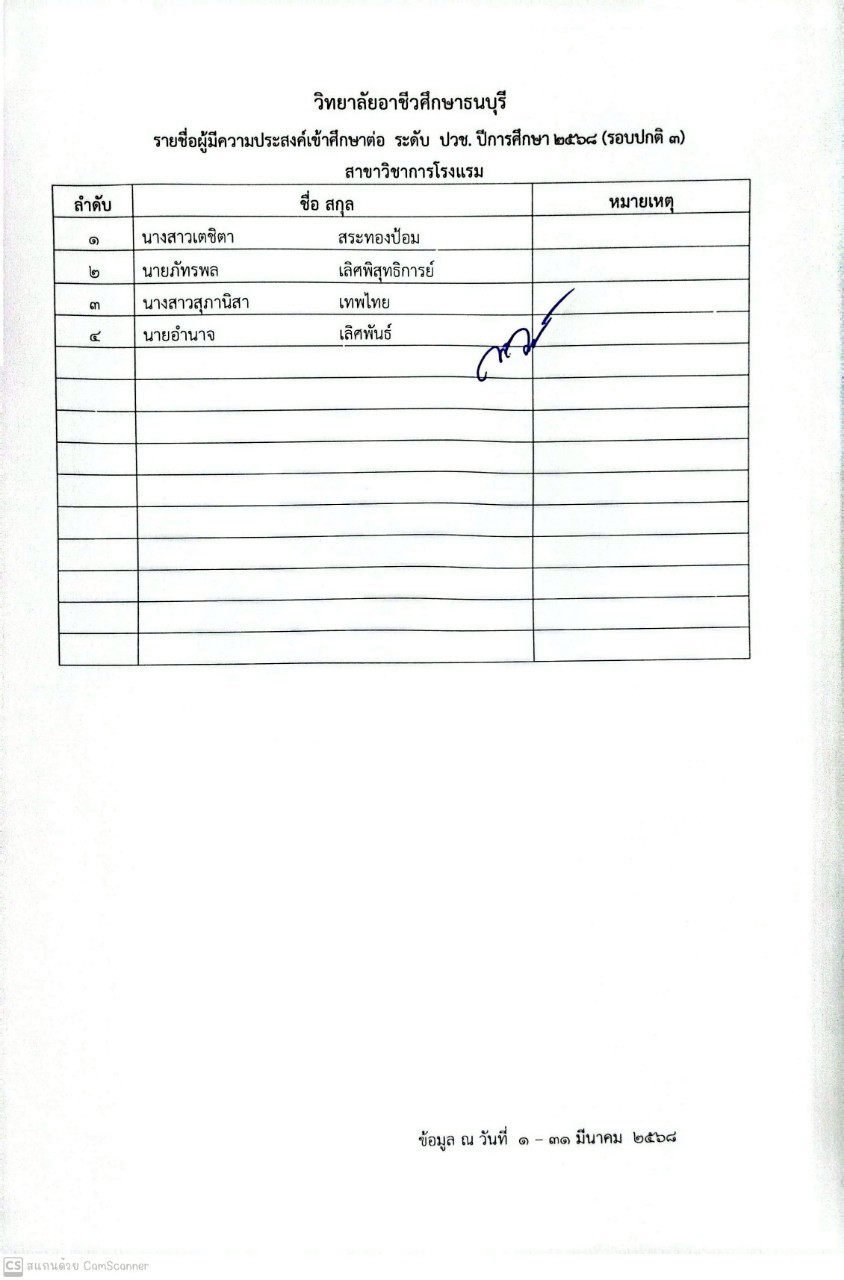 วิทยาลัยอาชีวศึกษาธนบุรี
รายชื่อผู้มีความประสงค์เข้าศึกษาต่อ ระดับ ปวช. ปีการศึกษา ๒๕๖๘ (รอบปกติ ๓)
สาขาวิชาการโรงแรม
ลำดับ ชื่อ สกุล หมายเหตุ
๑ นางสาวเตชิตา สระทองป้อม
๒ นายภัทรพล เลิศพิสุทธิการย์
๓ นางสาวสุภานิสา เทพไทย
๔ นายอำนาจ เลิศพันธ์
ข้อมูล ณ วันที่ ๑ - ๓๑ มีนาคม ๒๕๖๘
CS สแกนด้วย CamScanner